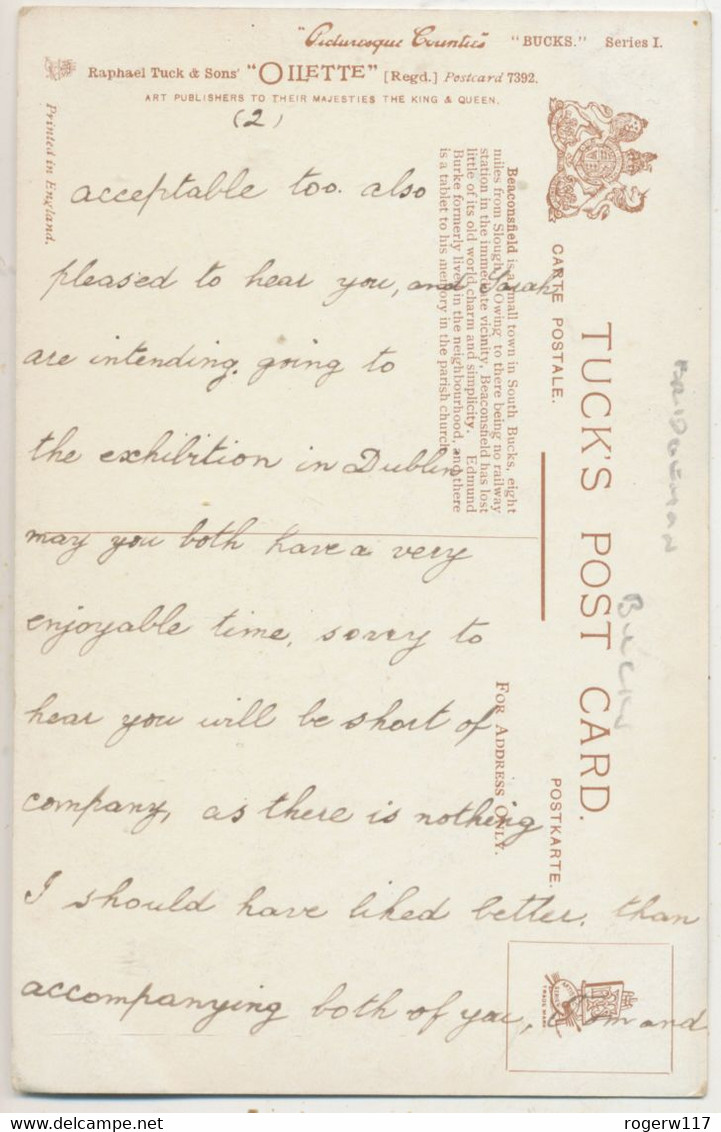 "Picturesque Counties" "BUCKS." Series I.
Raphael Tuck & Sons' "OILETTE" [Regd.] Postcard 7392.
ART PUBLISHERS TO THEIR MAJESTIES THE KING & QUEEN.
(2)
Printed in England.
acceptable too. also
pleased to hear you, and Sarah
are intending going to
the exhibition in Dublin
may you both have a very
enjoyable time, sorry to
hear you will be short of
company, as there is nothing
I should have liked better, than
accompanying both of you, Tom and
Beaconsfield is a small town in South Bucks, eight
miles from Slough. Owing to there being no railway
station in the immediate vicinity, Beaconsfield has lost
little of its old world charm and simplicity. Edmund
Burke formerly lived in the neighbourhood, and there
is a tablet to his memory in the parish church.
CARTE POSTALE.
TUCK'S POST CARD.
POSTKARTE.
FOR ADDRESS ONLY.
BUCKS
TRADE MARK
rogerw117